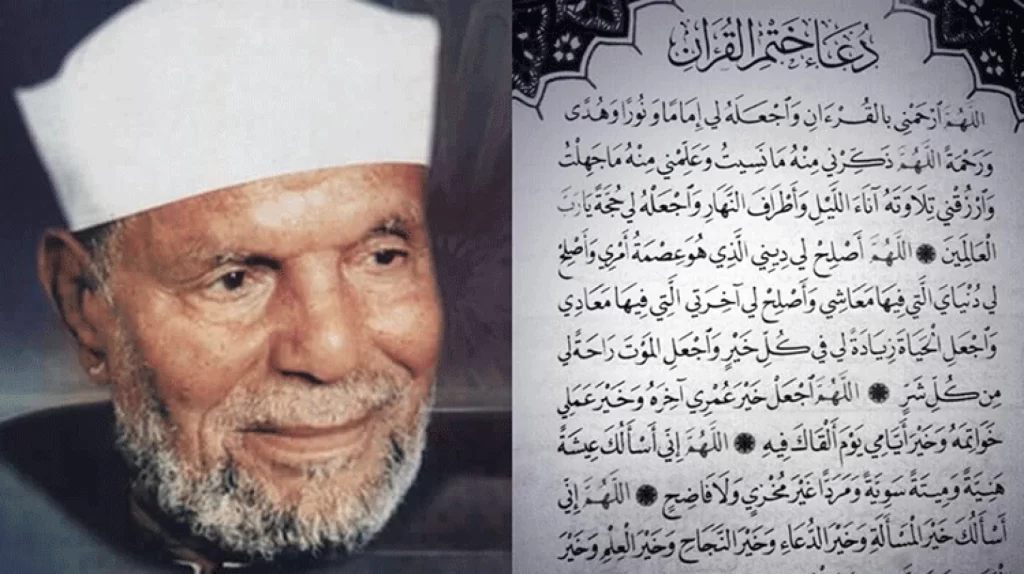 دُعَاءُ خَتْمِ القُرْآنِ
اللَّهُمَّ ٱرْحَمْنِي بالقُرْءَانِ وَٱجْعَلهُ لِي إِمَامًا وَ نُورًا وَهُدًى
وَرَحْمَةً اللَّهُمَّ ذَكِّرْنِي مِنْهُ مَا نَسِيتُ وَعَلِّمْنِي مِنْهُ مَا جَهِلْتُ
وَٱرْزُقْنِي تِلَاوَتَهُ آنَاءَ اللَّيْلِ وَأَطْرَافَ النَّهَارِ وَٱجْعَلْهُ لِي حُجَّةً يَارَبَّ
الْعَالَمِينَ ۞ اللَّهُمَّ أَصْلِحْ لِي دِينِي الَّذِي هُوَ عِصْمَةُ أَمْرِي وَأَصْلِحْ
لِي دُنْيَايَ الَّتِي فِيهَا مَعَاشِي وَأَصْلِحْ لِي آخِرَتِي الَّتِي فِيهَا مَعَادِي
وَٱجْعَلِ الْحَيَاةَ زِيَادَةً لِي فِي كُلِّ خَيْرٍ وَٱجْعَلِ الْمَوْتَ رَاحَةً لِي
مِن كُلِّ شَرٍّ ۞ اللَّهُمَّ ٱجْعَلْ خَيْرَ عُمْرِي آخِرَهُ وَخَيْرَ عَمَلِي
خَوَاتِمَهُ وَخَيْرَ أَيَّامِي يَوْمَ أَلْقَاكَ فِيهِ ۞ اللَّهُمَّ إِنِّي أَسْأَلُكَ عِيشَةً
هَنِيَّةً وَمِيتَةً سَوِيَّةً وَمَرَدًّا غَيْرَ مُخْزِي وَلَا فَاضِحٍ ۞ اللَّهُمَّ إِنِّي
أَسْأَلُكَ خَيْرَ الْمَسْأَلَةِ وَخَيْرَ الدُّعَاءِ وَخَيْرَ النَّجَاحِ وَخَيْرَ الْعِلْمِ وَخَيْرَ